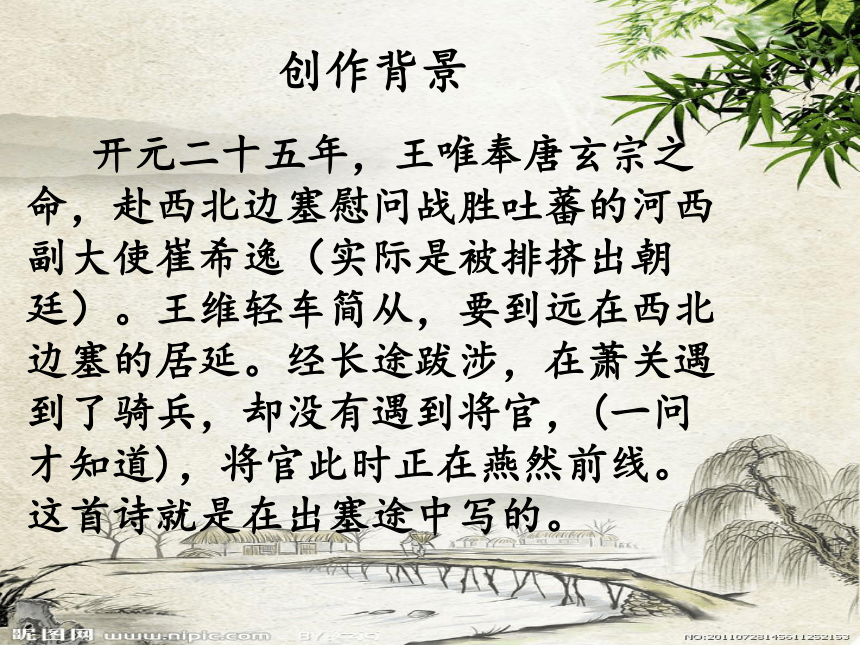 创作背景
开元二十五年，王唯奉唐玄宗之
命，赴西北边塞慰问战胜吐蕃的河西
副大使崔希逸（实际是被排挤出朝
廷）。王维轻车简从，要到远在西北
边塞的居延。经长途跋涉，在萧关遇
到了骑兵，却没有遇到将官，(一问
才知道)，将官此时正在燕然前线。
这首诗就是在出塞途中写的。
昵图网 www.nipic.com
NO:20110728145611252153